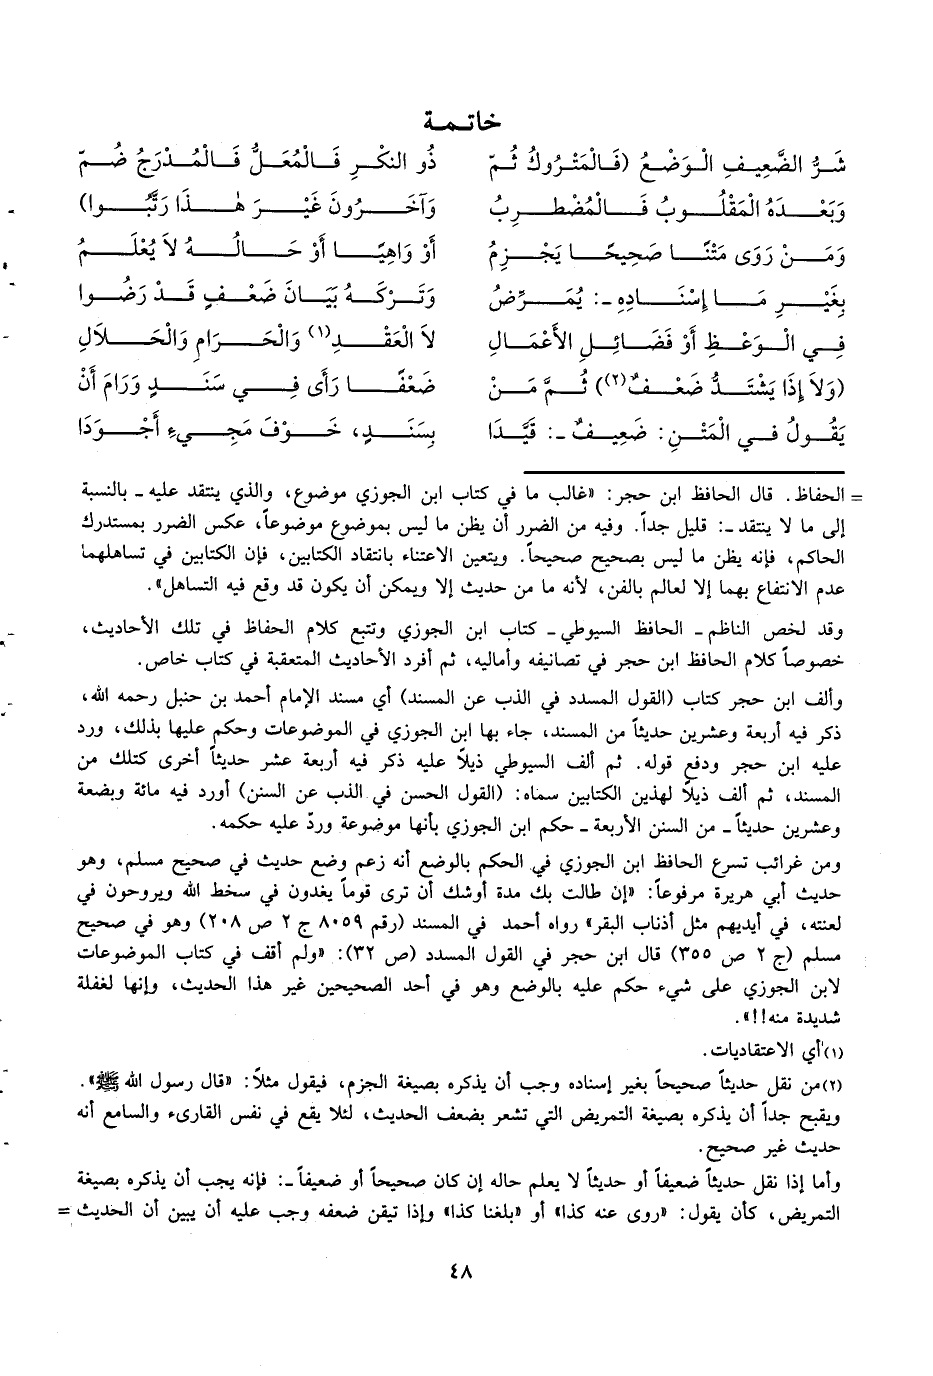 خاتمة
شَرُّ الضَّعِيفِ الْوَضْعُ (فَالْمَتْرُوكُ ثُمّ ذُو النكْرِ فَالْمُعَلُّ فَالْمُدْرَجُ ضُمّ
وَبَعْدَهُ الْمَقْلُوبُ فَالْمُضْطَرِبُ وَآخَرُونَ غَيْرَ هٰذَا رَتَّبُوا)
وَمَنْ رَوَى مَتْنًا صَحِيحًا يَجْزِمُ أَوْ وَاهِيًا أَوْ حَالُهُ لَا يُعْلَمُ
بِغَيْرِ مَا إِسْنَادِهِ ـ: يُمَرِّضُ وَتَرْكَهُ بَيَانَ ضَعْفٍ قَدْ رَضُوا
فِي الْوَعْظِ أَوْ فَضَائِلِ الأَعْمَالِ لَا الْعَقْدِ(١) وَالْحَرَامِ وَالْحَلَالِ
(وَلَا إِذَا يَشْتَدُّ ضَعْفٌ(٢)) ثُمَّ مَنْ ضَعْفًا رَأَى فِي سَنَدٍ وَرَامَ أَنْ
يَقُولَ فِي الْمَتْنِ: ضَعِيفٌ ـ: قَيَّدَا بِسَنَدٍ، خَوْفَ مَجِيءِ أَجْوَدَا
= الحفاظ. قال الحافظ ابن حجر: «غالب ما في كتاب ابن الجوزي موضوع، والذي ينتقد عليه ـ بالنسبة
إلى ما لا ينتقد ـ: قليل جداً. وفيه من الضرر أن يظن ما ليس بموضوع موضوعاً، عكس الضرر بمستدرك
الحاكم، فإنه يظن ما ليس بصحيح صحيحاً. ويتعين الاعتناء بانتقاد الكتابين، فإن الكتابين في تساهلهما
عدم الانتفاع بهما إلا لعالم بالفن، لأنه ما من حديث إلا ويمكن أن يكون قد وقع فيه التساهل».
وقد لخص الناظم ـ الحافظ السيوطي ـ كتاب ابن الجوزي وتتبع كلام الحفاظ في تلك الأحاديث،
خصوصاً كلام الحافظ ابن حجر في تصانيفه وأماليه، ثم أفرد الأحاديث المتعقبة في كتاب خاص.
وألف ابن حجر كتاب (القول المسدد في الذب عن المسند) أي مسند الإمام أحمد بن حنبل رحمه الله،
ذكر فيه أربعة وعشرين حديثاً من المسند، جاء بها ابن الجوزي في الموضوعات وحكم عليها بذلك، ورد
عليه ابن حجر ودفع قوله. ثم ألف السيوطي ذيلاً عليه ذكر فيه أربعة عشر حديثاً أخرى كتلك من
المسند، ثم ألف ذيلاً لهذين الكتابين سماه: (القول الحسن في الذب عن السنن) أورد فيه مائة وبضعة
وعشرين حديثاً ـ من السنن الأربعة ـ حكم ابن الجوزي بأنها موضوعة وردّ عليه حكمه.
ومن غرائب تسرع الحافظ ابن الجوزي في الحكم بالوضع أنه زعم وضع حديث في صحيح مسلم، وهو
حديث أبي هريرة مرفوعاً: «إن طالت بك مدة أوشك أن ترى قوماً يغدون في سخط الله ويروحون في
لعنته، في أيديهم مثل أذناب البقر» رواه أحمد في المسند (رقم ٨٠٥٩ ج ٢ ص ٢٠٨) وهو في صحيح
مسلم (ج ٢ ص ٣٥٥) قال ابن حجر في القول المسدد (ص ٣٢): «ولم أقف في كتاب الموضوعات
لابن الجوزي على شيء حكم عليه بالوضع وهو في أحد الصحيحين غير هذا الحديث، وإنها لغفلة
شديدة منه!!».
(١) أي الاعتقاديات.
(٢) من نقل حديثاً صحيحاً بغير إسناده وجب أن يذكره بصيغة الجزم، فيقول مثلاً: «قال رسول الله ﷺ».
ويقبح جداً أن يذكره بصيغة التمريض التي تشعر بضعف الحديث، لئلا يقع في نفس القارىء والسامع أنه
حديث غير صحيح.
وأما إذا نقل حديثاً ضعيفاً أو حديثاً لا يعلم حاله إن كان صحيحاً أو ضعيفاً ـ: فإنه يجب أن يذكره بصيغة
التمريض، كأن يقول: «روى عنه كذا» أو «بلغنا كذا» وإذا تيقن ضعفه وجب عليه أن يبين أن الحديث =
٤٨